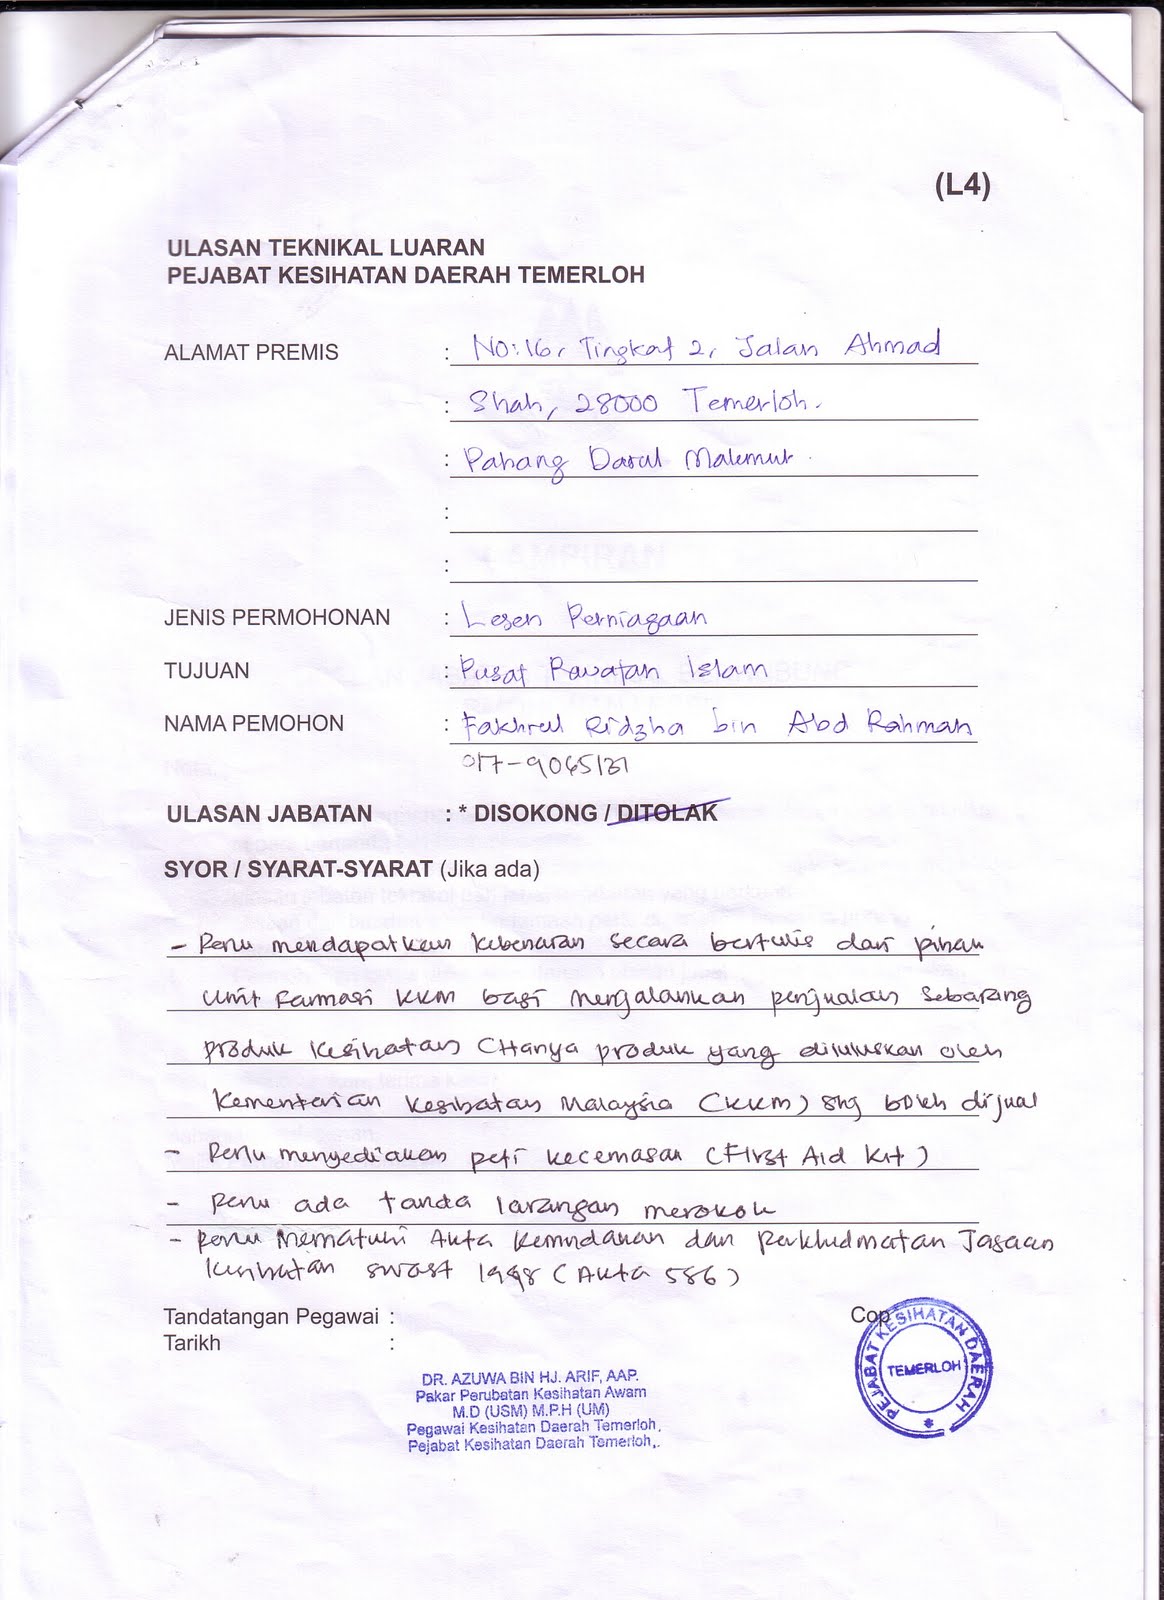 (L4)
ULASAN TEKNIKAL LUARAN
PEJABAT KESIHATAN DAERAH TEMERLOH
ALAMAT PREMIS : No: 16, Tingkat 2, Jalan Ahmad
: Shah, 28000 Temerloh.
: Pahang Darul Makmur.
:
:
JENIS PERMOHONAN : Lesen Perniagaan
TUJUAN : Pusat Rawatan Islam
NAMA PEMOHON : Fakhrul Ridzha bin Abd Rahman
017-9065131
ULASAN JABATAN : * DISOKONG / DITOLAK
SYOR / SYARAT-SYARAT (Jika ada)
- Perlu mendapatkan kebenaran secara bertulis dari pihak
unit Farmasi KKM bagi menjalankan penjualan sebarang
produk kesihatan (Hanya produk yang diluluskan oleh
Kementerian Kesihatan Malaysia (KKM) shg boleh dijual
- Perlu menyediakan peti kecemasan (First Aid Kit)
- Perlu ada tanda larangan merokok
- Perlu Mematuhi Akta Kemudahan dan Perkhidmatan Jagaan
Kesihatan swast 1998 (Akta 586)
Tandatangan Pegawai : Cop
Tarikh :
PEJABAT KESIHATAN DAERAH
TEMERLOH
*
DR. AZUWA BIN HJ. ARIF, AAP.
Pakar Perubatan Kesihatan Awam
M.D (USM) M.P.H (UM)
Pegawai Kesihatan Daerah Temerloh,
Pejabat Kesihatan Daerah Temerloh,.